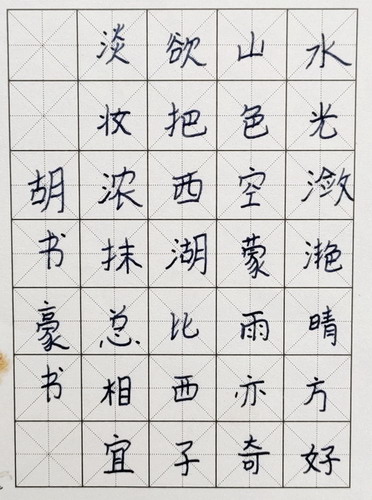 水光潋滟晴方好
山色空蒙雨亦奇
欲把西湖比西子
淡妆浓抹总相宜
胡书豪书